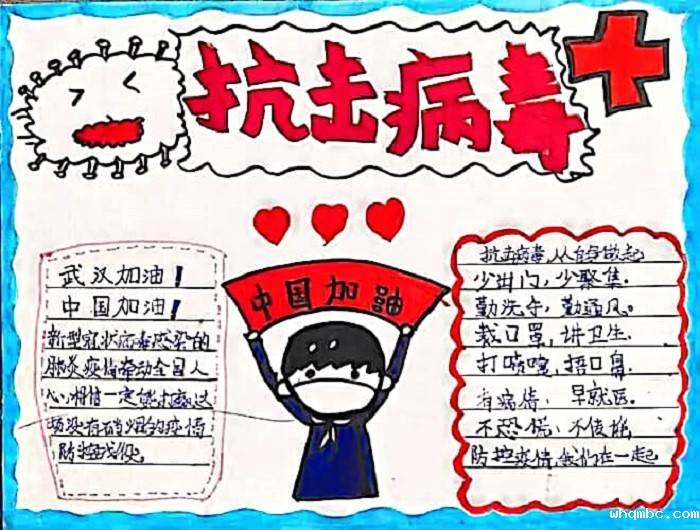 抗击病毒
中国加油
武汉加油！
中国加油！
新型冠状病毒感染的
肺炎疫情牵动全国人
心，相信一定能打赢这
场没有硝烟的疫情
防控战役。
抗击病毒，从自身做起
少出门，少聚集.
勤洗手，勤通风。
戴口罩，讲卫生.
打喷嚏，捂口鼻.
有病情，早就医.
不恐慌，不传谣.
防控疫情，我们在一起
whqmbc.com